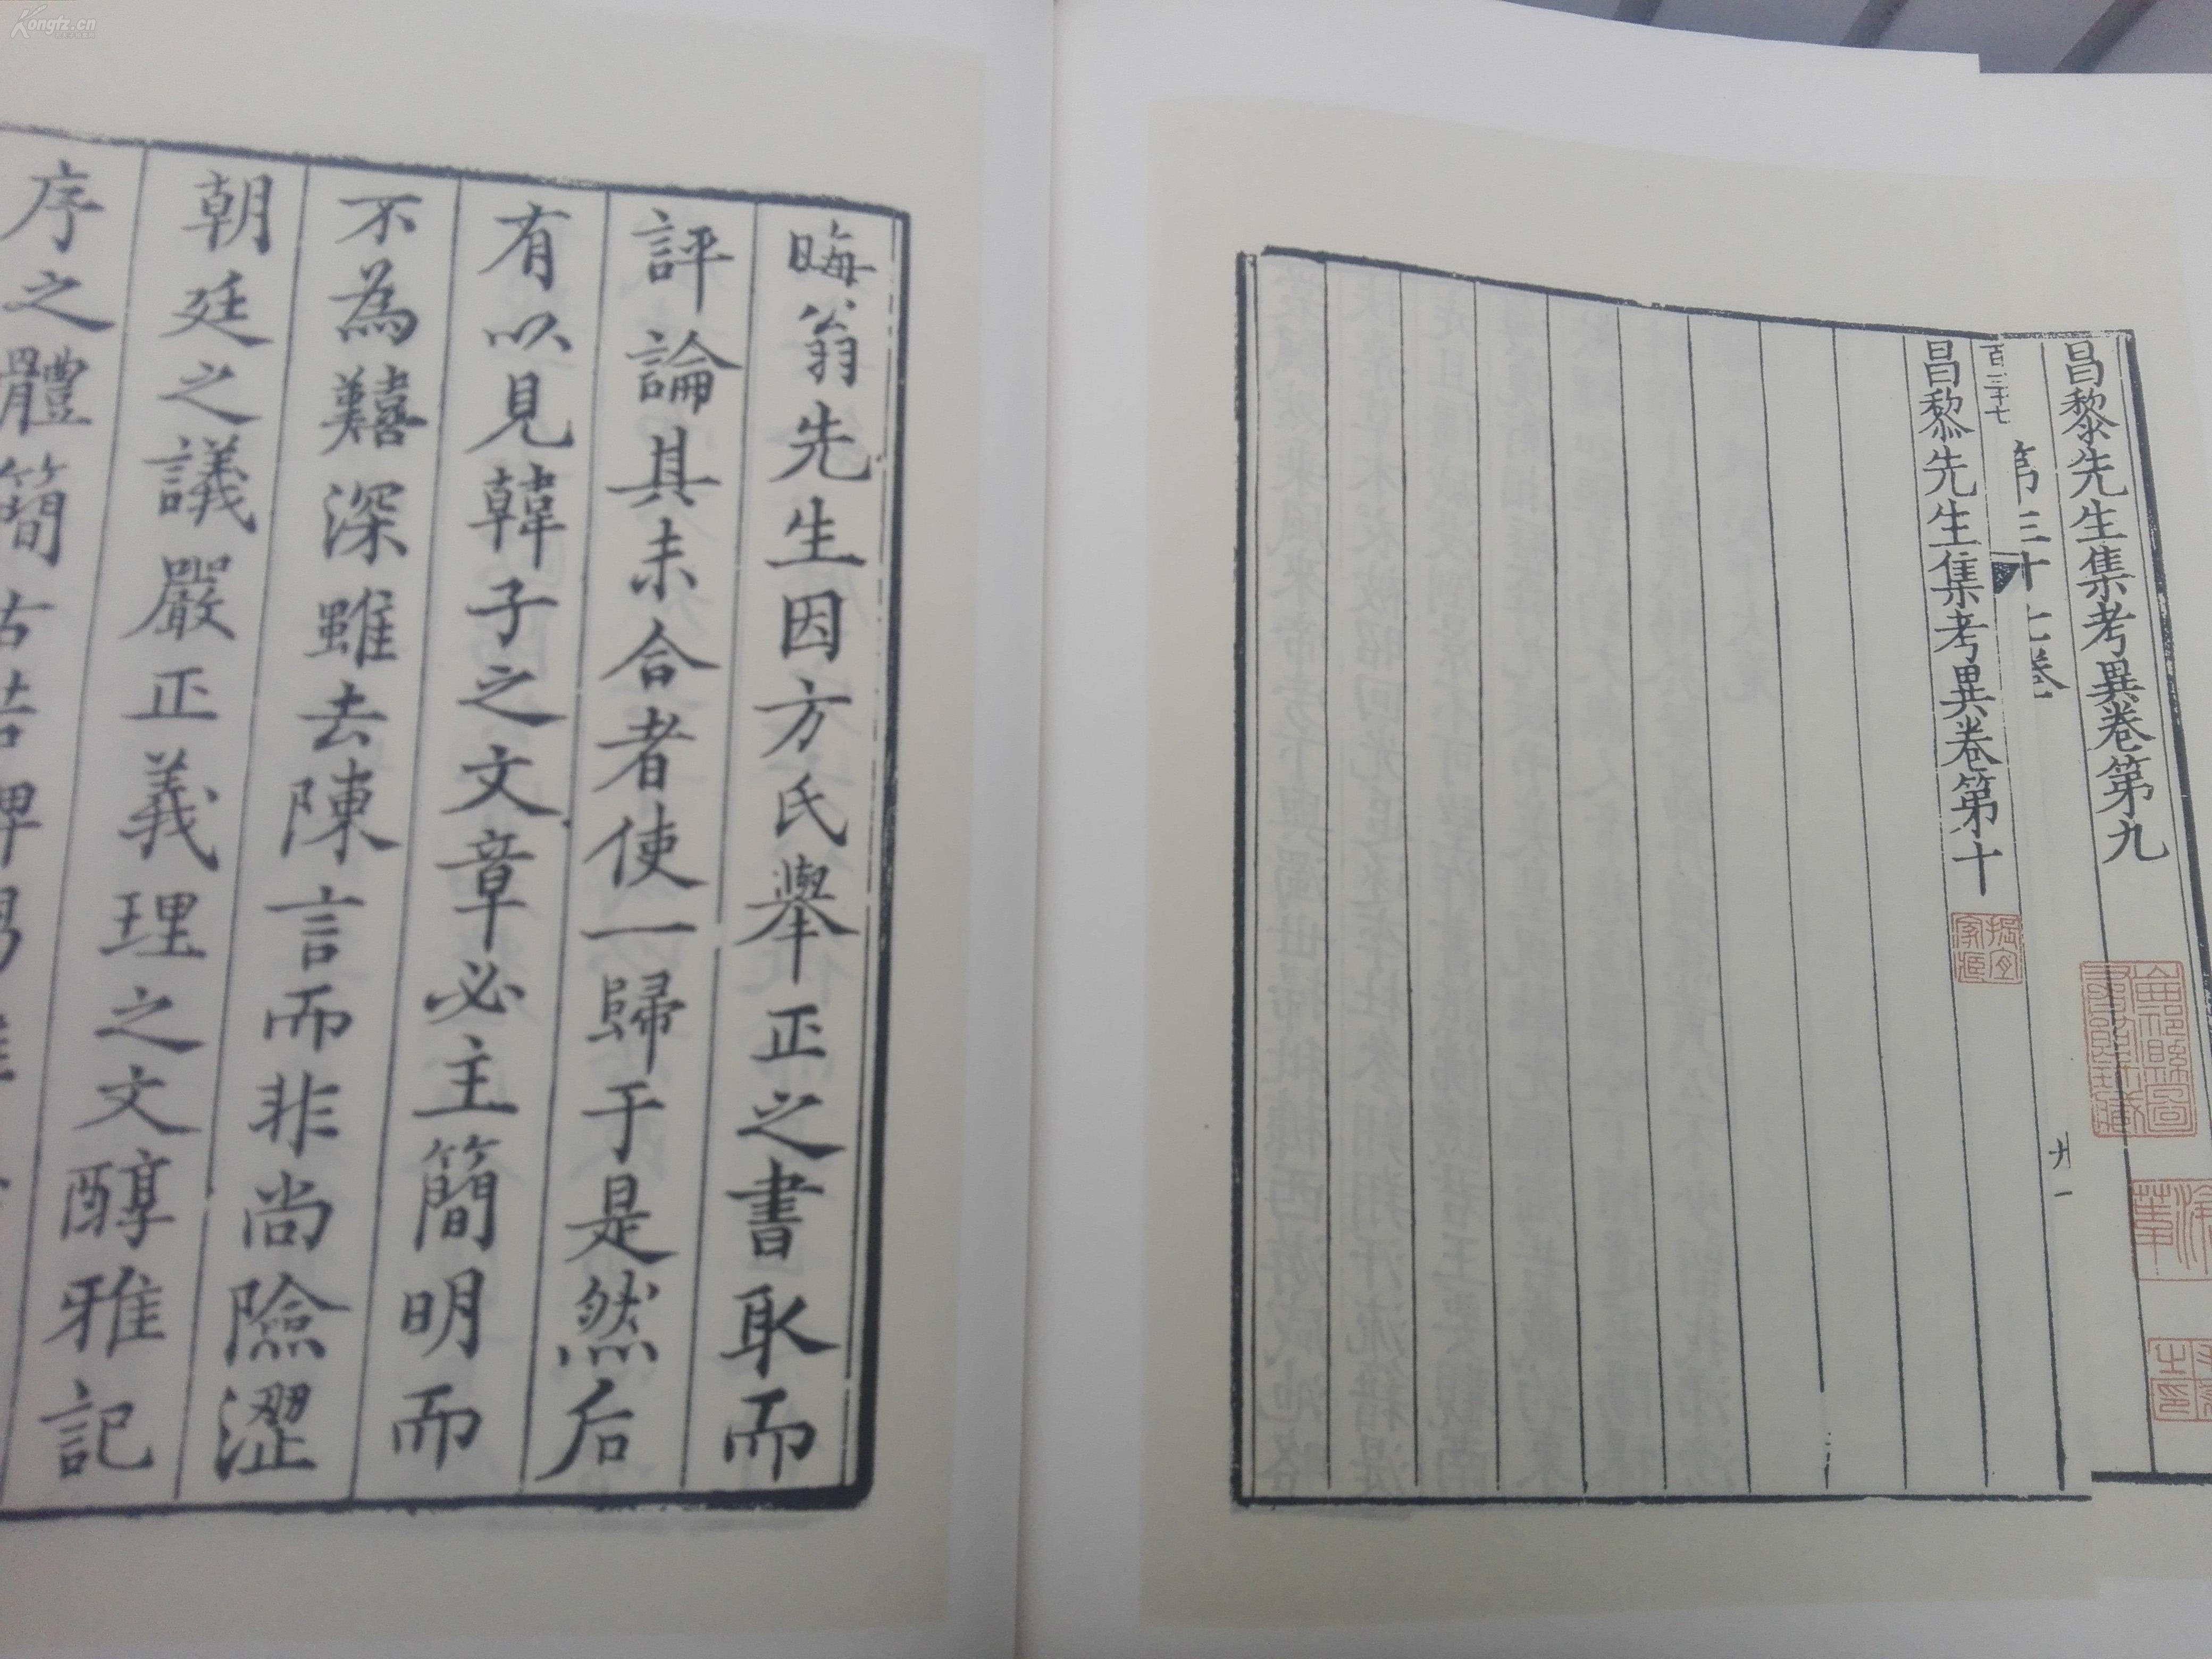 昌黎先生集考異卷第九
第三十七卷
百二十七
昌黎先生集考異卷第十
晦翁先生因方氏舉正之書取而
評論其未合者使一歸于是然后
有以見韓子之文章必主簡明而
不為囏深雖去陳言而非尚險澀
朝廷之議嚴正義理之文醇雅記
序之體簡古
Kongfz.cn